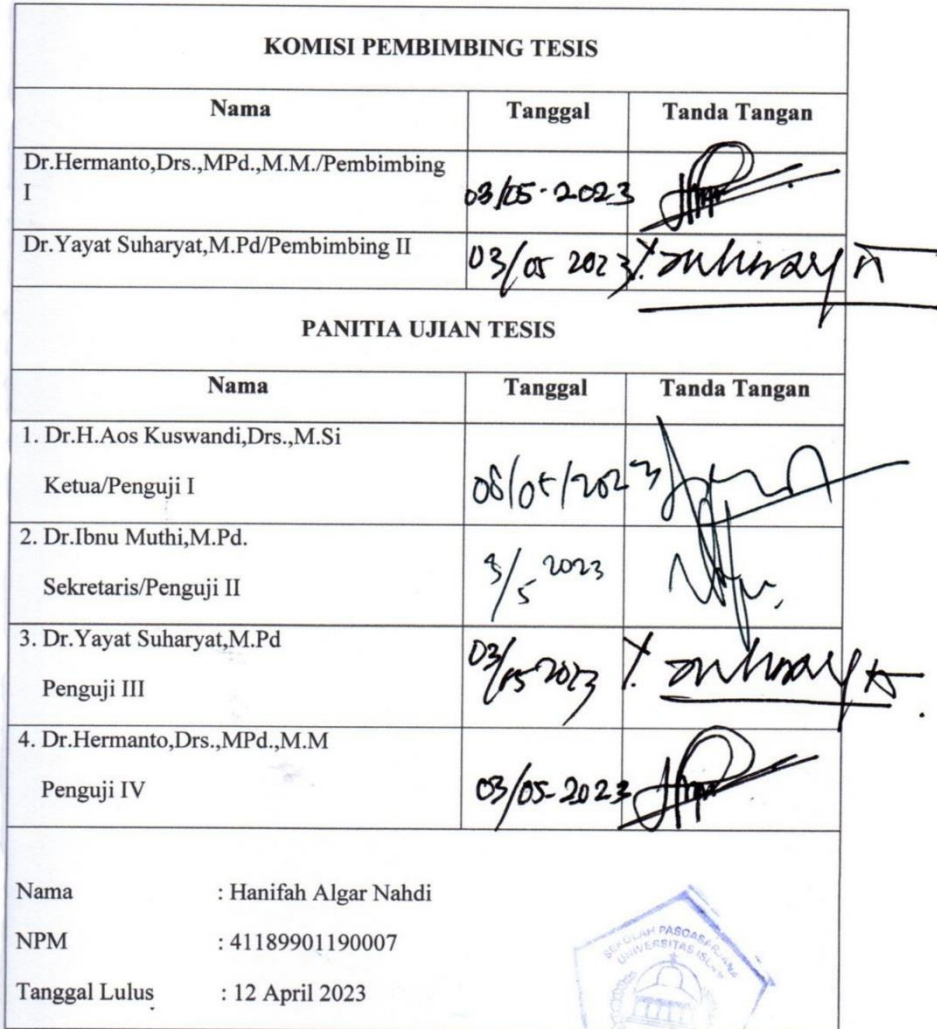 KOMISI PEMBIMBING TESIS
Nama Tanggal Tanda Tangan
Dr.Hermanto,Drs.,MPd.,M.M./Pembimbing
I
03/05-2023
Dr.Yayat Suharyat,M.Pd/Pembimbing II 03/05 2023
PANITIA UJIAN TESIS
Nama Tanggal Tanda Tangan
1. Dr.H.Aos Kuswandi,Drs.,M.Si
Ketua/Penguji I 08/05/2023
2. Dr.Ibnu Muthi,M.Pd.
Sekretaris/Penguji II /5 2023
3. Dr.Yayat Suharyat,M.Pd
Penguji III 03/05 2023
4. Dr.Hermanto,Drs.,MPd.,M.M
Penguji IV 03/05-2023
Nama : Hanifah Algar Nahdi
NPM : 41189901190007
Tanggal Lulus : 12 April 2023
SEKOLAH PASCASARJANA
UNIVERSITAS ISLAM